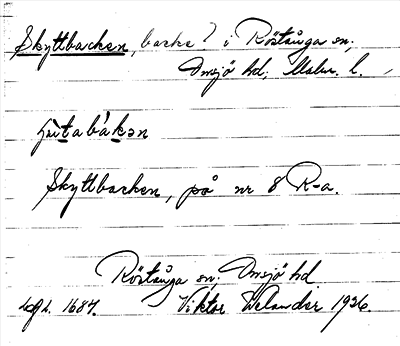 Skyttbacken, backe? i Röstånga sn,
Onsjö hd, Malm. l.
Skyttbacken, på nr 8 R-a.
Röstånga sn, Onsjö hd
1687. Viktor Welander 1926.